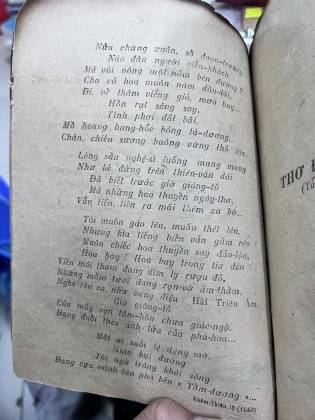 Nửa chừng xuân, số đoạn-trường,
Nào đâu người viễn-khách
Mà vùi nông một nấm bên đường?
Cho cỏ hoa muôn năm dầu-dãi,
Đi, về thăm viếng gió, mưa bay...
Hồn rạt sông say,
Tình phơi đất bãi,
Mồ hoang bằng-hốc bóng tà-dương...
Chân, chiều sương buông vừng thỏ lộn,
Lòng sầu nghệ-sĩ luống mang mang
Như kẻ đứng trên thiên-văn đài
Đã biết trước giờ giông-tố
Mà những hoa thuyền ngây-thơ,
Vẫn tiến, tiến ra mãi thẳm xa bờ...
Tôi muốn gào lên, muốn thét lên.
Nhưng kìa tiếng biển vẫn gầm rên!
Muốn chiếc hoa thuyền say đảo-lộn,
Hoa bay! Hoa bay trong tia đèn!
Viên môi thắm đang dìm ly rượu đỏ,
Những mắm tươi đang rạn-vỡ âm-thầm.
Nghe rền ca như vang điệu: Hải Triều Âm.
Giờ giông-tố
Của mấy vạn tâm-hồn chưa giác-ngộ.
Đang đuổi theo ánh-lửa của phù-hoa...
Mắt ai suối lệ dâng mờ,
Nhìn bụi đường
Tôi ngờ trông khói sóng
Đang cựa mình tàn phá bến « Tầm-dương »...
Khâm-Thiên 10 (1940)
THƠ
(Tá